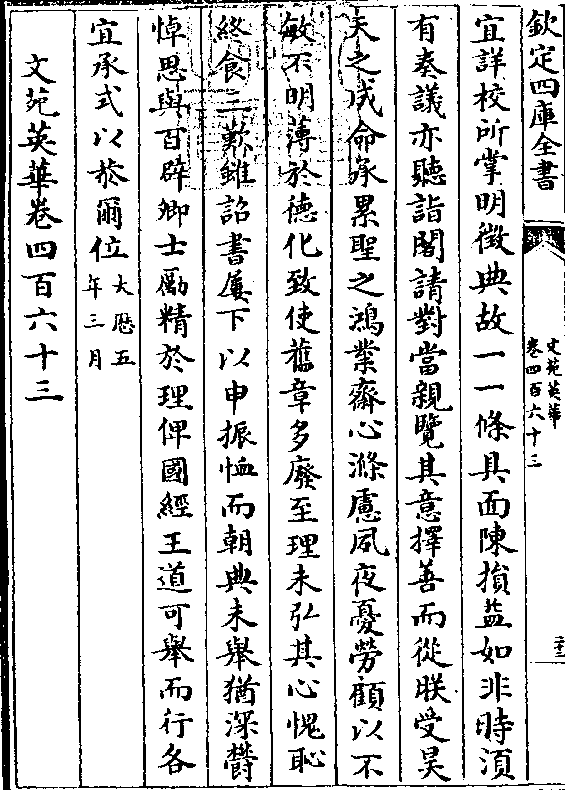 欽定四庫全書
文苑英華
卷四百六十三
宜詳校所掌明徵典故一一條具面陳損益如非時湏
有奏議亦聽詣閤請對當親覽其意擇善而從朕受昊
天之成命承累聖之鴻業齋心滌慮夙夜憂勞顧以不
敏不明薄於德化致使舊章多廢至理未弘其心愧恥
終食三歎雖詔書屢下以申振恤而朝典未舉猶深欝
悼思與百辟卿士勵精於理俾國經王道可舉而行各
宜承式以恭爾位大厯五
年三月
文苑英華卷四百六十三